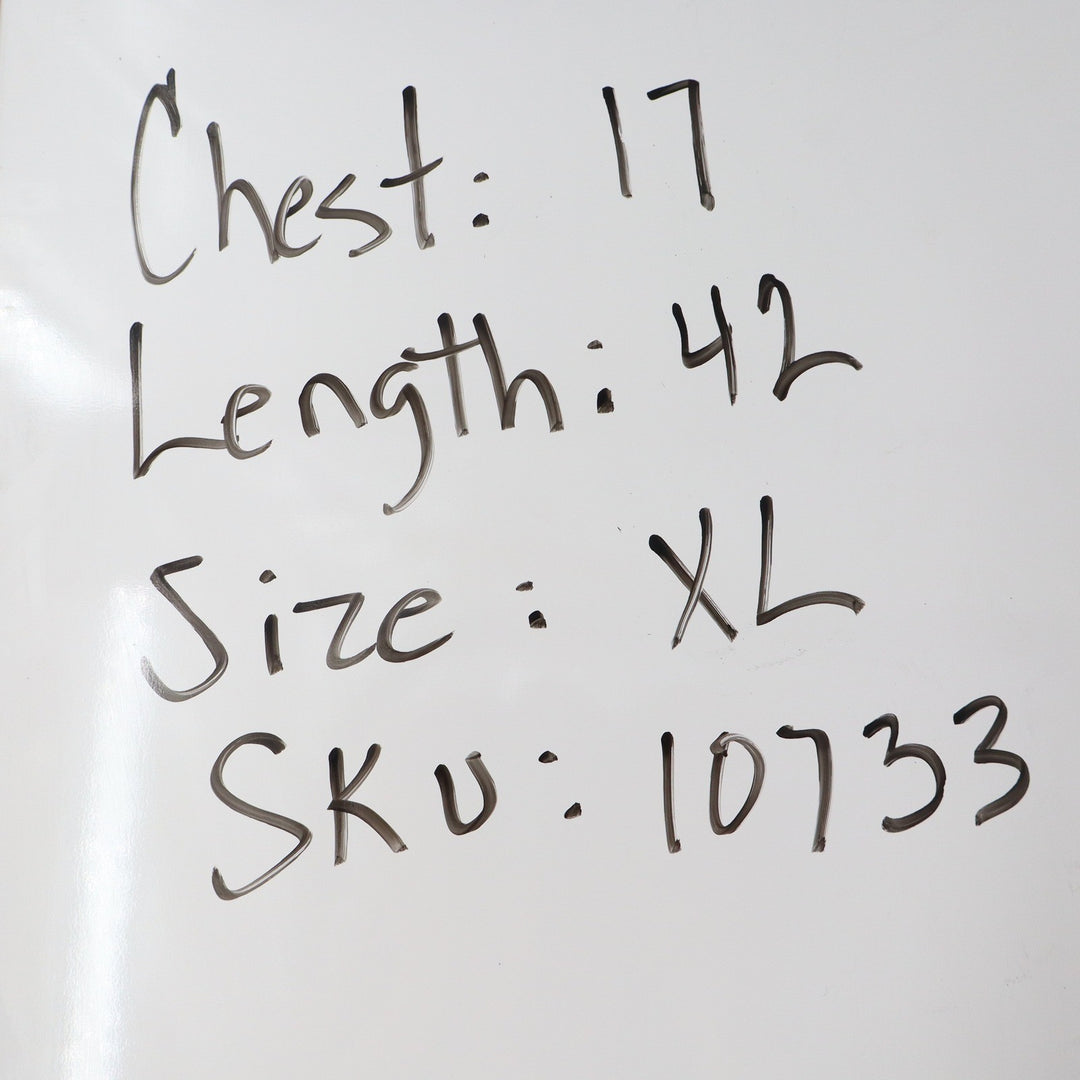 Chest: 17
Length: 42
Size: XL
SKU: 10733